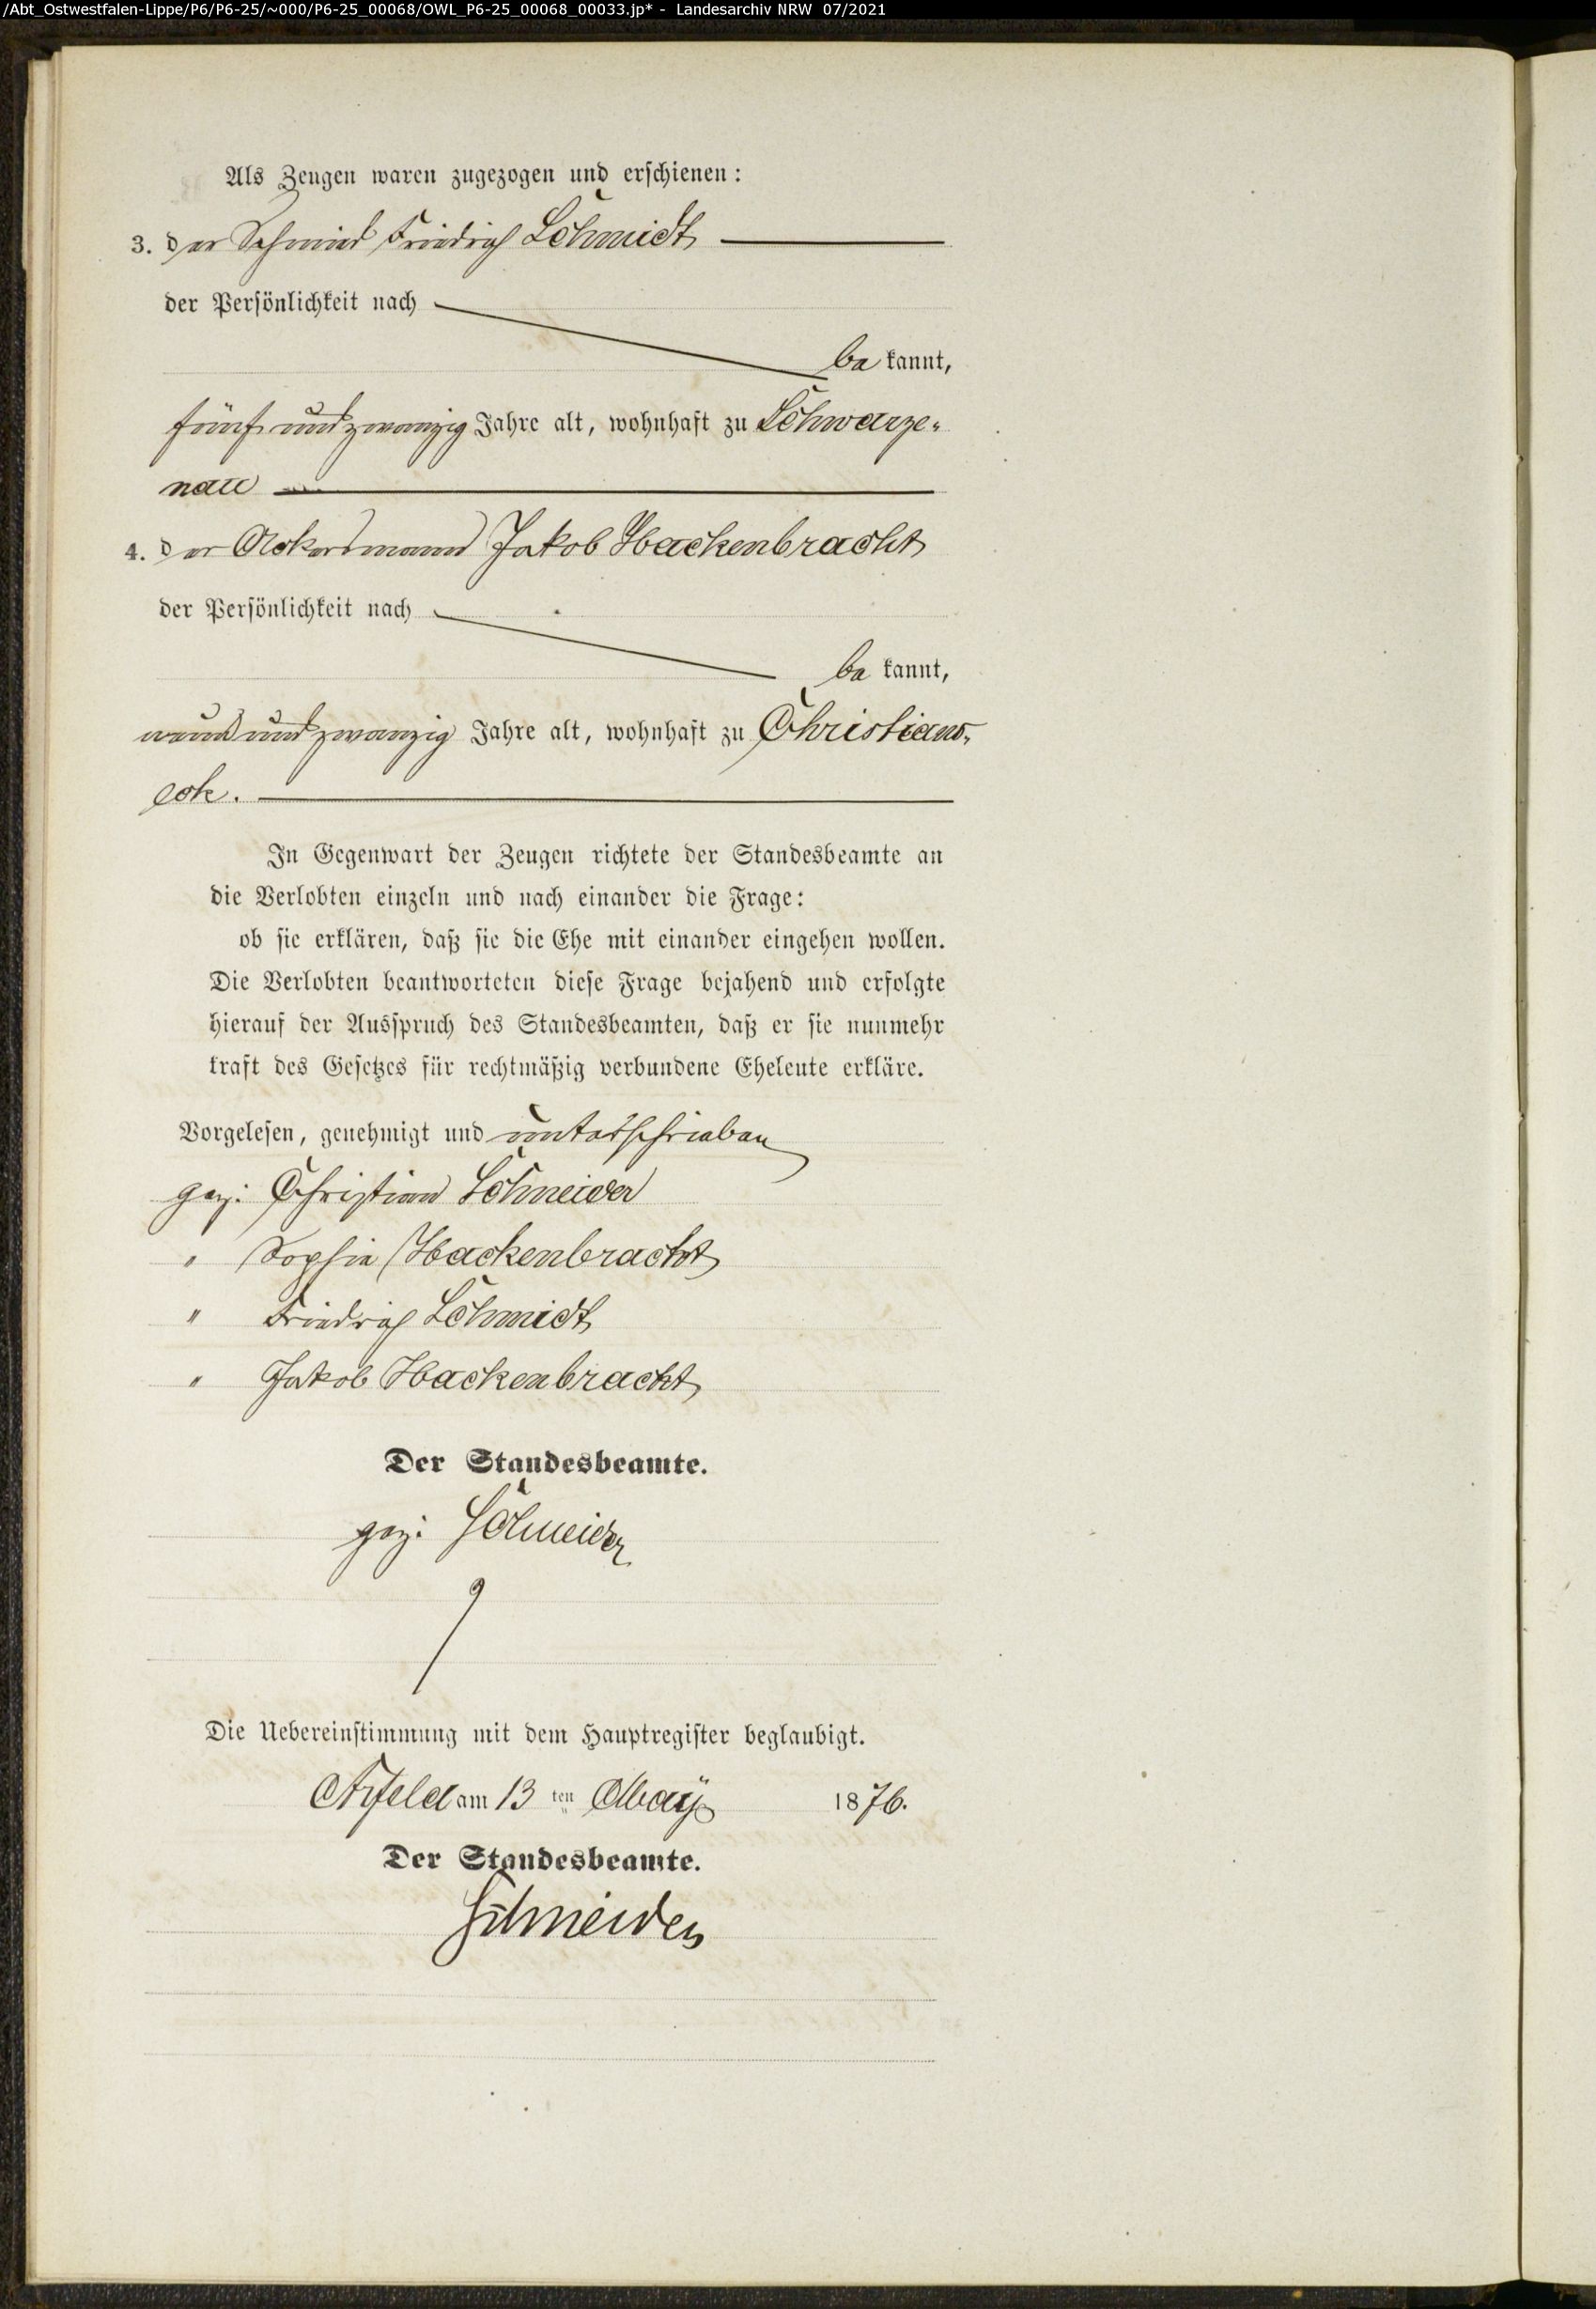 /Abt_Ostwestfalen-Lippe/P6/P6-25/~000/P6-25_00068/OWL_P6-25_00068_00033.jp* - Landesarchiv NRW 07/2021
Als Zeugen waren zugezogen und erschienen:
3. der Schmied Friedrich Schmidt
der Persönlichkeit nach
be kannt,
fünf und zwanzig Jahre alt, wohnhaft zu Schwarze-
nau
4. der Ackersmann Jakob Hackenbracht
der Persönlichkeit nach
be kannt,
neun und zwanzig Jahre alt, wohnhaft zu Christians-
eck.
In Gegenwart der Zeugen richtete der Standesbeamte an
die Verlobten einzeln und nach einander die Frage:
ob sie erklären, daß sie die Ehe mit einander eingehen wollen.
Die Verlobten beantworteten diese Frage bejahend und erfolgte
hierauf der Ausspruch des Standesbeamten, daß er sie nunmehr
kraft des Gesetzes für rechtmäßig verbundene Eheleute erkläre.
Vorgelesen, genehmigt und unterschrieben
gez: Christian Schneider
" Sophie Hackenbracht
" Friedrich Schmidt
" Jakob Hackenbracht
Der Standesbeamte.
gez: Schneider
Die Uebereinstimmung mit dem Hauptregister beglaubigt.
Arfeld am 13 ten May 1876.
Der Standesbeamte.
Schneider